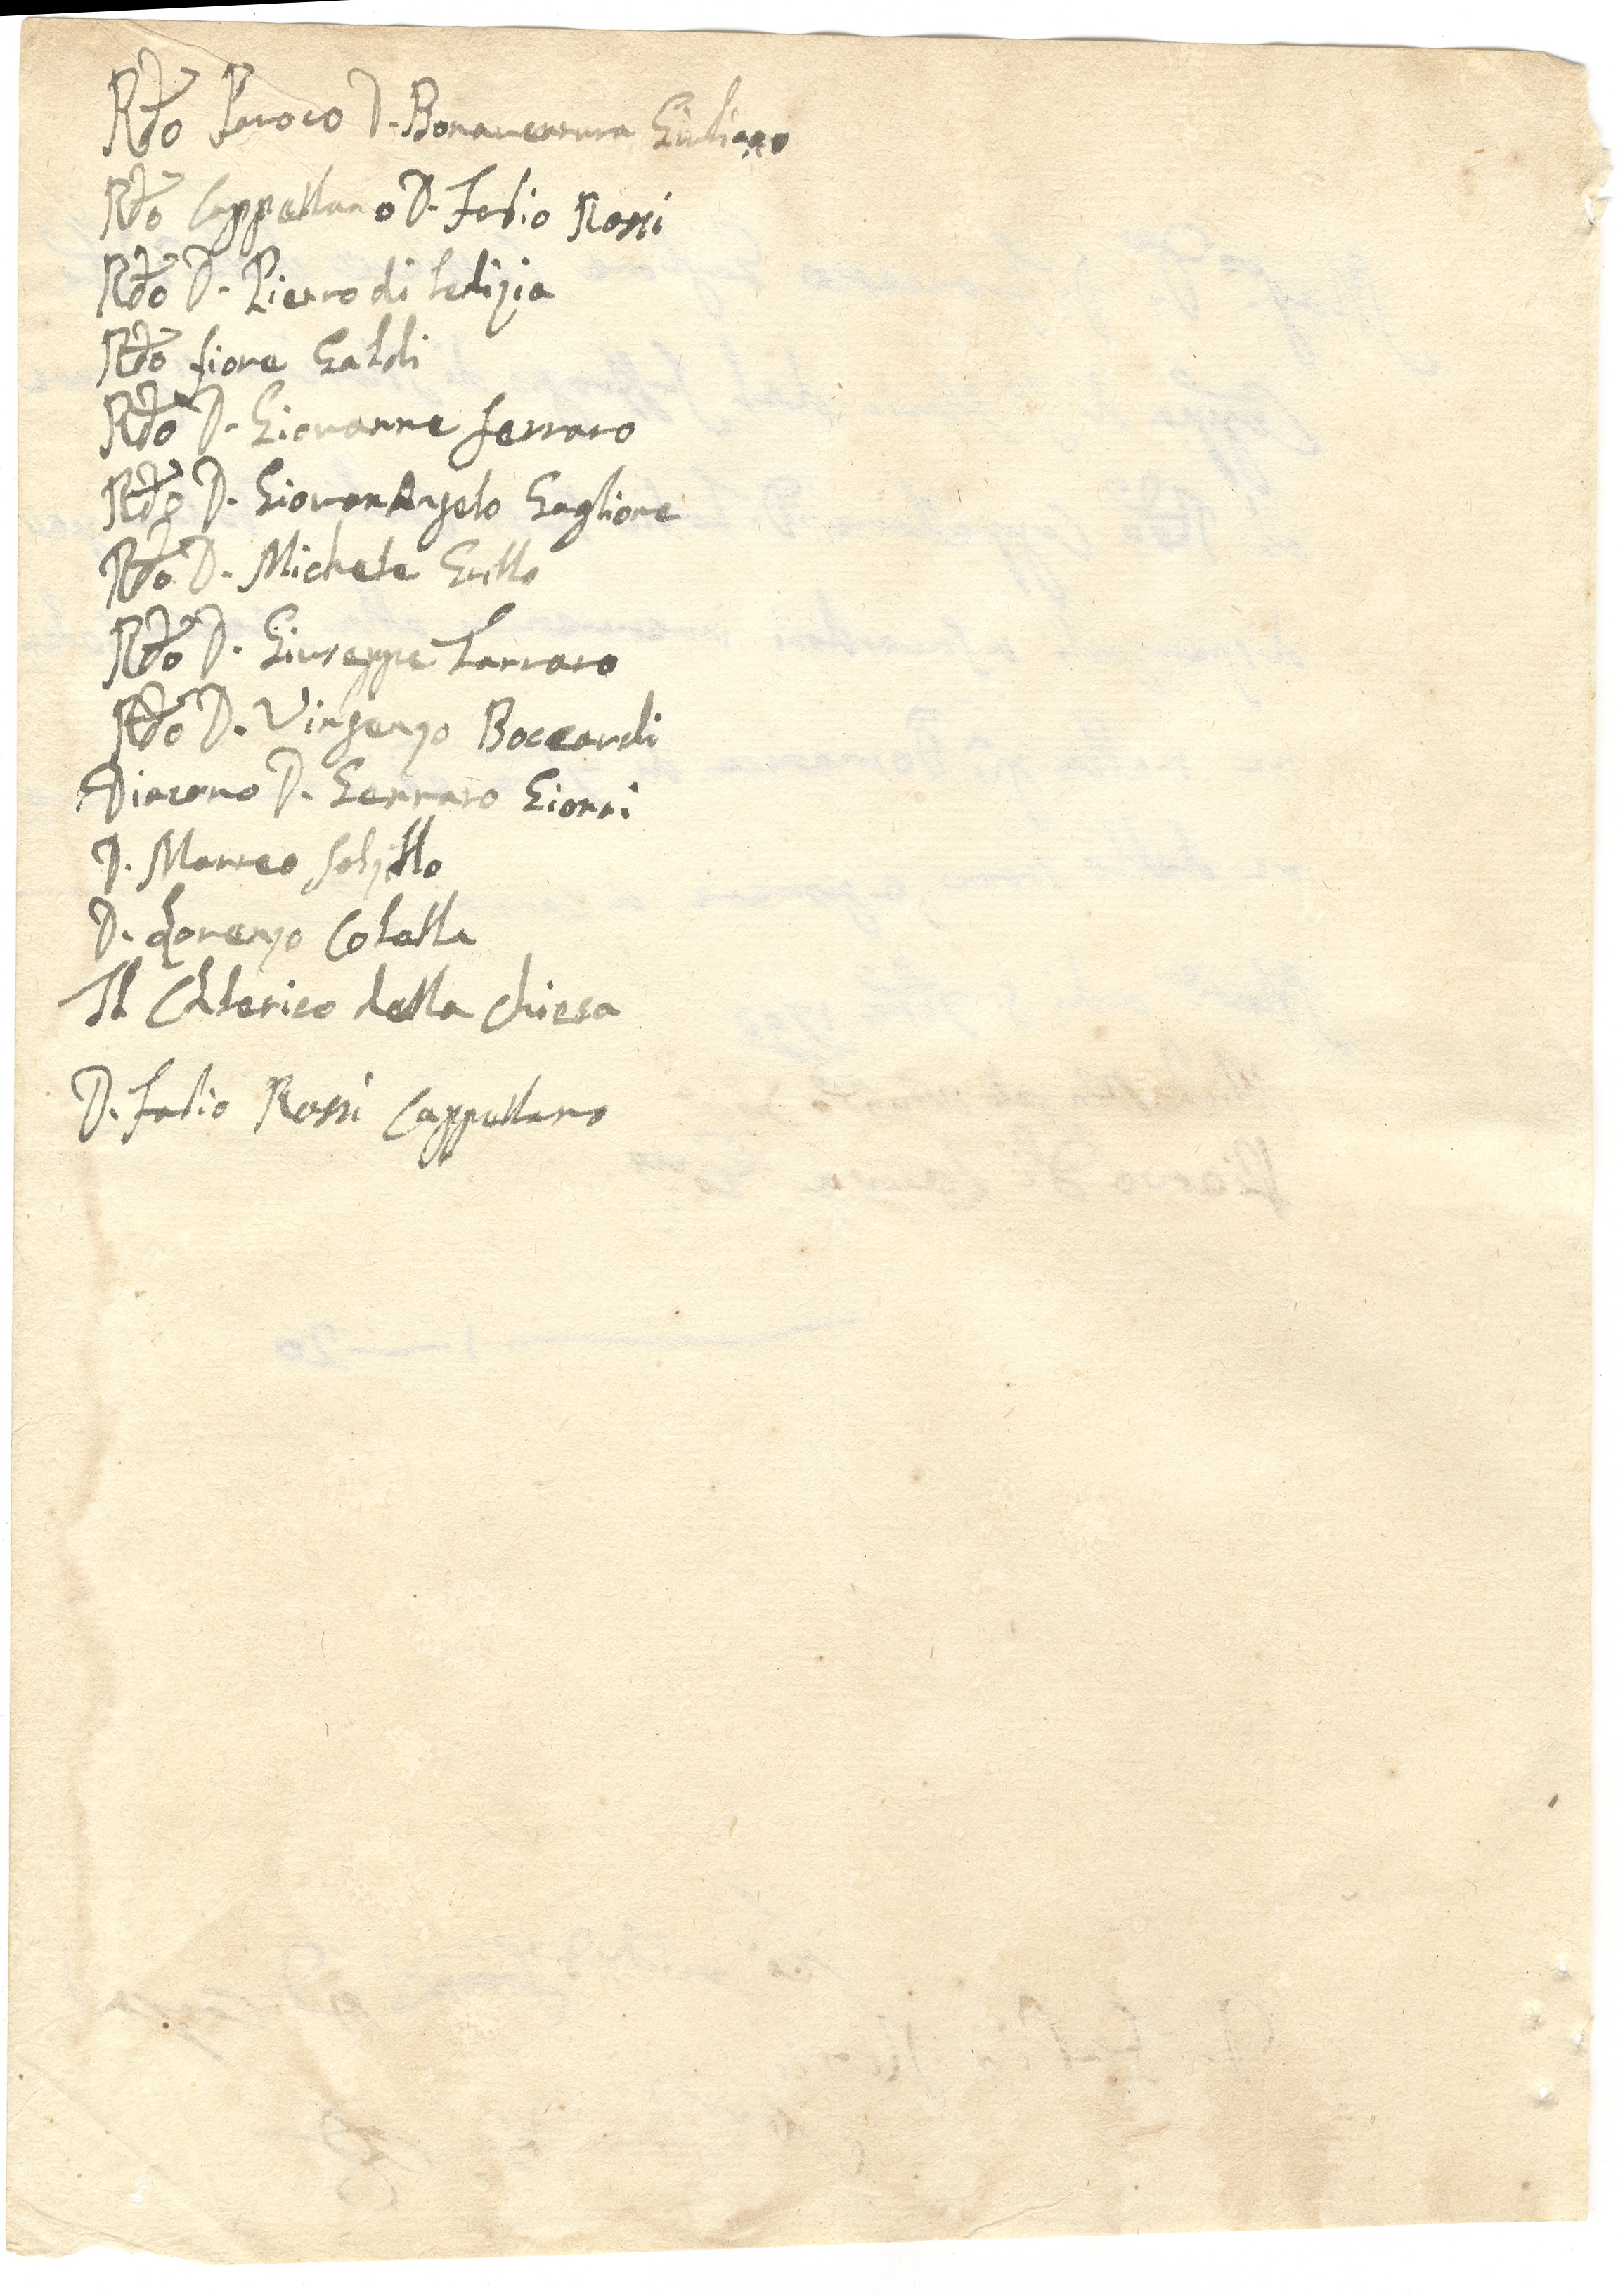 Rdo Paroco D. Bonaventura Giuliano
Rdo Cappellano D. Fabio Rossi
Rdo D. Pietro di Letizia
Rdo fiore Galdi
Rdo D. Giovanne ferraro
Rdo D. Giovan Angelo Gaglione
Rdo D. Michele Grillo
Rdo D. Giuseppe
Rdo D. Vinsenzo Boccardi
Diacono D. Gennaro Giorni
D. Matteo
D. Lorenzo Colella
Il Chlerico della chiesa
D. Fabio Rossi Cappellano